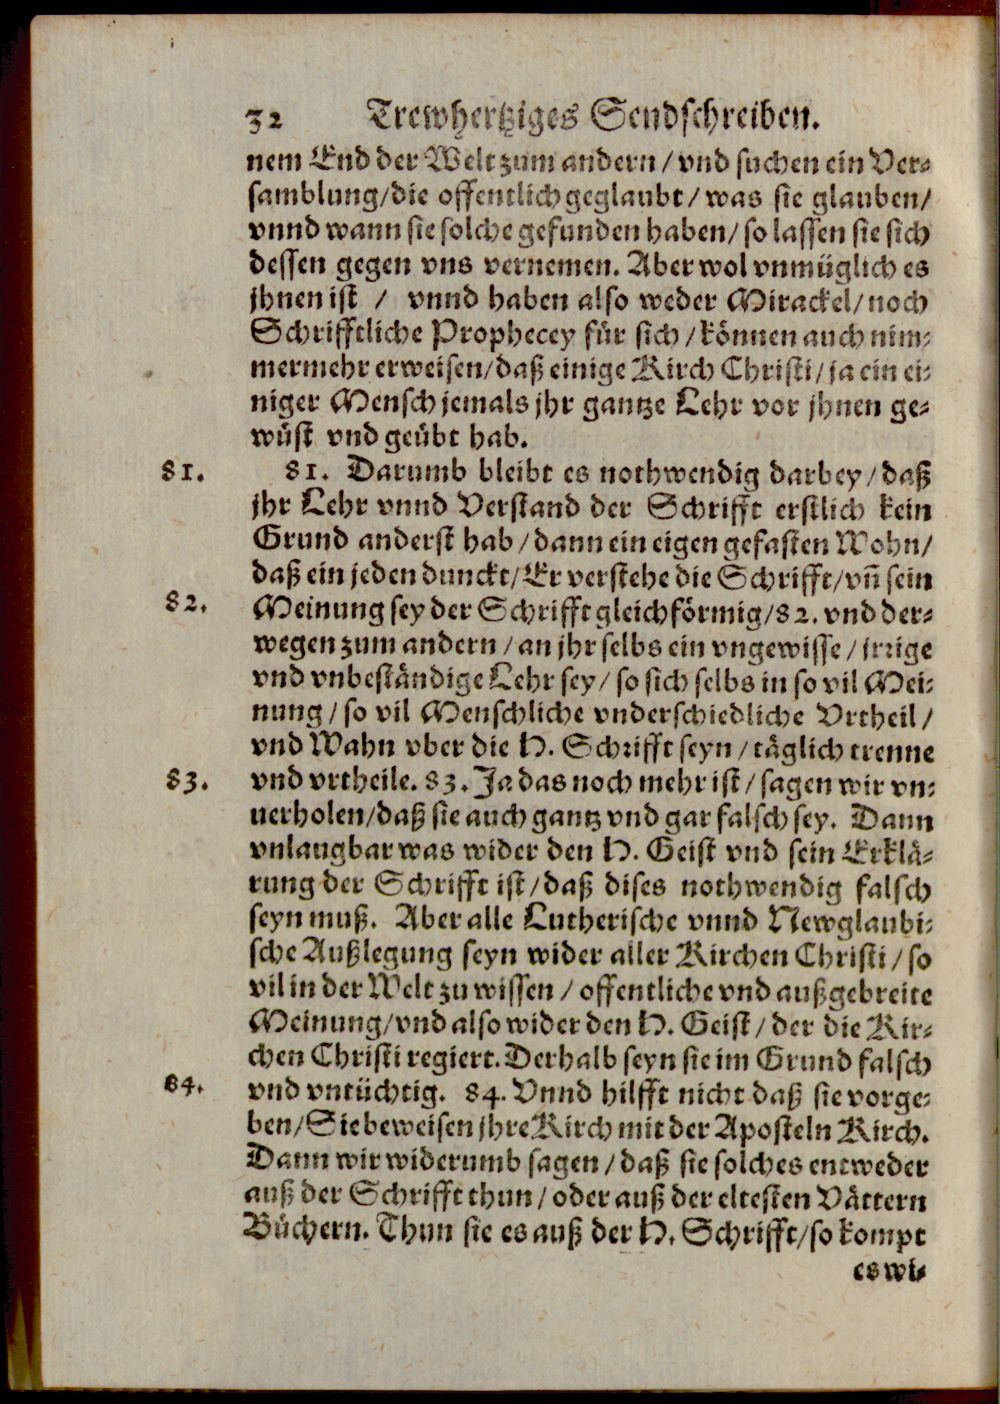 32 Trewhertziges Sendschreiben.
nem End der Welt zum andern / vnd suchen ein Ver-
samblung/die offentlich geglaubt / was sie glauben/
vnnd wann sie solche gefunden haben/ so lassen sie sich
dessen gegen vns vernemen. Aber wol vnmüglich es
jhnen ist / vnnd haben also weder Mirackel/noch
Schrifftliche Prophecey für sich / können auch nim-
mermehr erweisen/daß einige Kirch Christi/ ja ein ei-
niger Mensch jemals jhr gantze Lehr vor jhnen ge-
wüst vnd geübt hab.
81. 81. Darumb bleibt es nothwendig darbey/daß
jhr Lehr vnnd Verstand der Schrifft erstlich kein
Grund anderst hab / dann ein eigen gefasten Wohn/
daß ein jeden dunckt/Er verstehe die Schrifft/vñ sein
82. Meinung sey der Schrifft gleichförmig/82. vnd der-
wegen zum andern / an jhr selbs ein vngewisse / jrrige
vnd vnbeständige Lehr sey/ so sich selbs in so vil Mei-
nung / so vil Menschliche vnderschiedliche Vrtheil /
vnd Wahn vber die H. Schrifft seyn / täglich trenne
83. vnd vrtheile. 83. Ja das noch mehr ist / sagen wir vn-
uerholen/daß sie auch gantz vnd gar falsch sey. Dann
vnlaugbar was wider den H. Geist vnd sein Erklä-
rung der Schrifft ist/daß dises nothwendig falsch
seyn muß. Aber alle Lutherische vnnd Newglaubi-
sche Außlegung seyn wider aller Kirchen Christi / so
vil in der Welt zu wissen / offentliche vnd außgebreite
Meinung/vnd also wider den H. Geist / der die Kir-
chen Christi regiert. Derhalb seyn sie im Grund falsch
84. vnd vntüchtig. 84. Vnnd hilfft nicht daß sie vorge-
ben/Sie beweisen jhre Kirch mit der Aposteln Kirch.
Dann wir widerumb sagen / daß sie solches entweder
auß der Schrifft thun / oder auß der eltesten Vättern
Büchern. Thun sie es auß der H. Schrifft/so kompt
es wi-